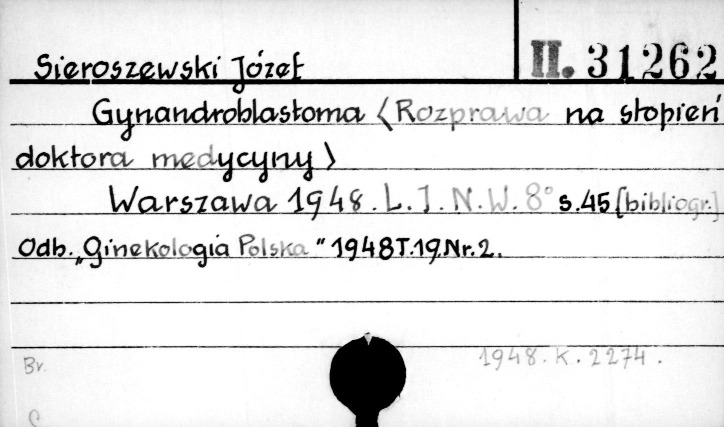 II. 31262
Sieroszewski Józef
Gynandroblastoma (Rozprawa na stopień
doktora medycyny)
Warszawa 1948. L. I. N. W. 8° s. 45 [bibliogr.]
Odb. „Ginekologia Polska" 1948 T. 19. Nr. 2.
1948. K. 2274.
Br.